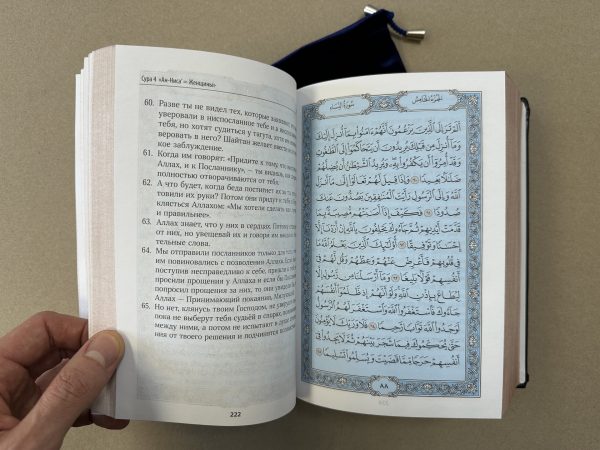 Сура 4 «Ан-Ниса' = Женщины»
60. Разве ты не видел тех, которые
уверовали в ниспосланное тебе и в
тебя, но хотят судиться у тагута, хотя им
веровать в него? Шайтан желает ввести их
кое заблуждение.
61. Когда им говорят: «Придите к тому, что
Аллах, и к Посланнику», — ты видишь, как
полностью отворачиваются от тебя.
62. А что будет, когда беда постигнет их за то,
товили их руки? Потом они придут к тебе
клясться Аллахом: «Мы хотели сделать как
и правильнее».
63. Аллах знает, что у них в сердцах. Потому
от них, но увещевай их и говори им
тельные слова.
64. Мы отправили посланников только для того,
им повиновались с позволения Аллаха. Если
поступив несправедливо к себе, пришли к
просили прощения у Аллаха и если бы
попросил прощения за них, то они увидели
Аллах — Принимающий покаяния,
65. Но нет, клянусь твоим Господом, не уверуют
пока не выберут тебя судьёй в спорах,
между ними, а потом не испытают в душе
ния от твоего решения и подчинятся
222
الجزء الخامس
سورة النساء
أَلَمْ تَرَ إِلَى ٱلَّذِينَ يَزْعُمُونَ أَنَّهُمْ ءَامَنُوا۟ بِمَآ أُنزِلَ إِلَيْكَ
وَمَآ أُنزِلَ مِن قَبْلِكَ يُرِيدُونَ أَن يَتَحَاكَمُوٓا۟ إِلَى ٱلطَّٰغُوتِ
وَقَدْ أُمِرُوٓا۟ أَن يَكْفُرُوا۟ بِهِۦ وَيُرِيدُ ٱلشَّيْطَٰنُ أَن يُضِلَّهُمْ
ضَلَٰلًۢا بَعِيدًا ٦٠ وَإِذَا قِيلَ لَهُمْ تَعَالَوْا۟ إِلَىٰ مَآ أَنزَلَ
ٱللَّهُ وَإِلَى ٱلرَّسُولِ رَأَيْتَ ٱلْمُنَٰفِقِينَ يَصُدُّونَ عَنكَ
صُدُودًا ٦١ فَكَيْفَ إِذَآ أَصَٰبَتْهُم مُّصِيبَةٌۢ بِمَا
قَدَّمَتْ أَيْدِيهِمْ ثُمَّ جَآءُوكَ يَحْلِفُونَ بِٱللَّهِ إِنْ أَرَدْنَآ إِلَّآ
إِحْسَٰنًا وَتَوْفِيقًا ٦٢ أُو۟لَٰٓئِكَ ٱلَّذِينَ يَعْلَمُ ٱللَّهُ مَا
فِى قُلُوبِهِمْ فَأَعْرِضْ عَنْهُمْ وَعِظْهُمْ وَقُل لَّهُمْ فِىٓ
أَنفُسِهِمْ قَوْلًۢا بَلِيغًا ٦٣ وَمَآ أَرْسَلْنَا مِن رَّسُولٍ إِلَّا
لِيُطَاعَ بِإِذْنِ ٱللَّهِ وَلَوْ أَنَّهُمْ إِذ ظَّلَمُوٓا۟ أَنفُسَهُمْ
جَآءُوكَ فَٱسْتَغْفَرُوا۟ ٱللَّهَ وَٱسْتَغْفَرَ لَهُمُ ٱلرَّسُولُ
لَوَجَدُوا۟ ٱللَّهَ تَوَّابًا رَّحِيمًا ٦٤ فَلَا وَرَبِّكَ لَا يُؤْمِنُونَ
حَتَّىٰ يُحَكِّمُوكَ فِيمَا شَجَرَ بَيْنَهُمْ ثُمَّ لَا يَجِدُوا۟ فِىٓ
أَنفُسِهِمْ حَرَجًا مِّمَّا قَضَيْتَ وَيُسَلِّمُوا۟ تَسْلِيمًا ٦٥
٨٨